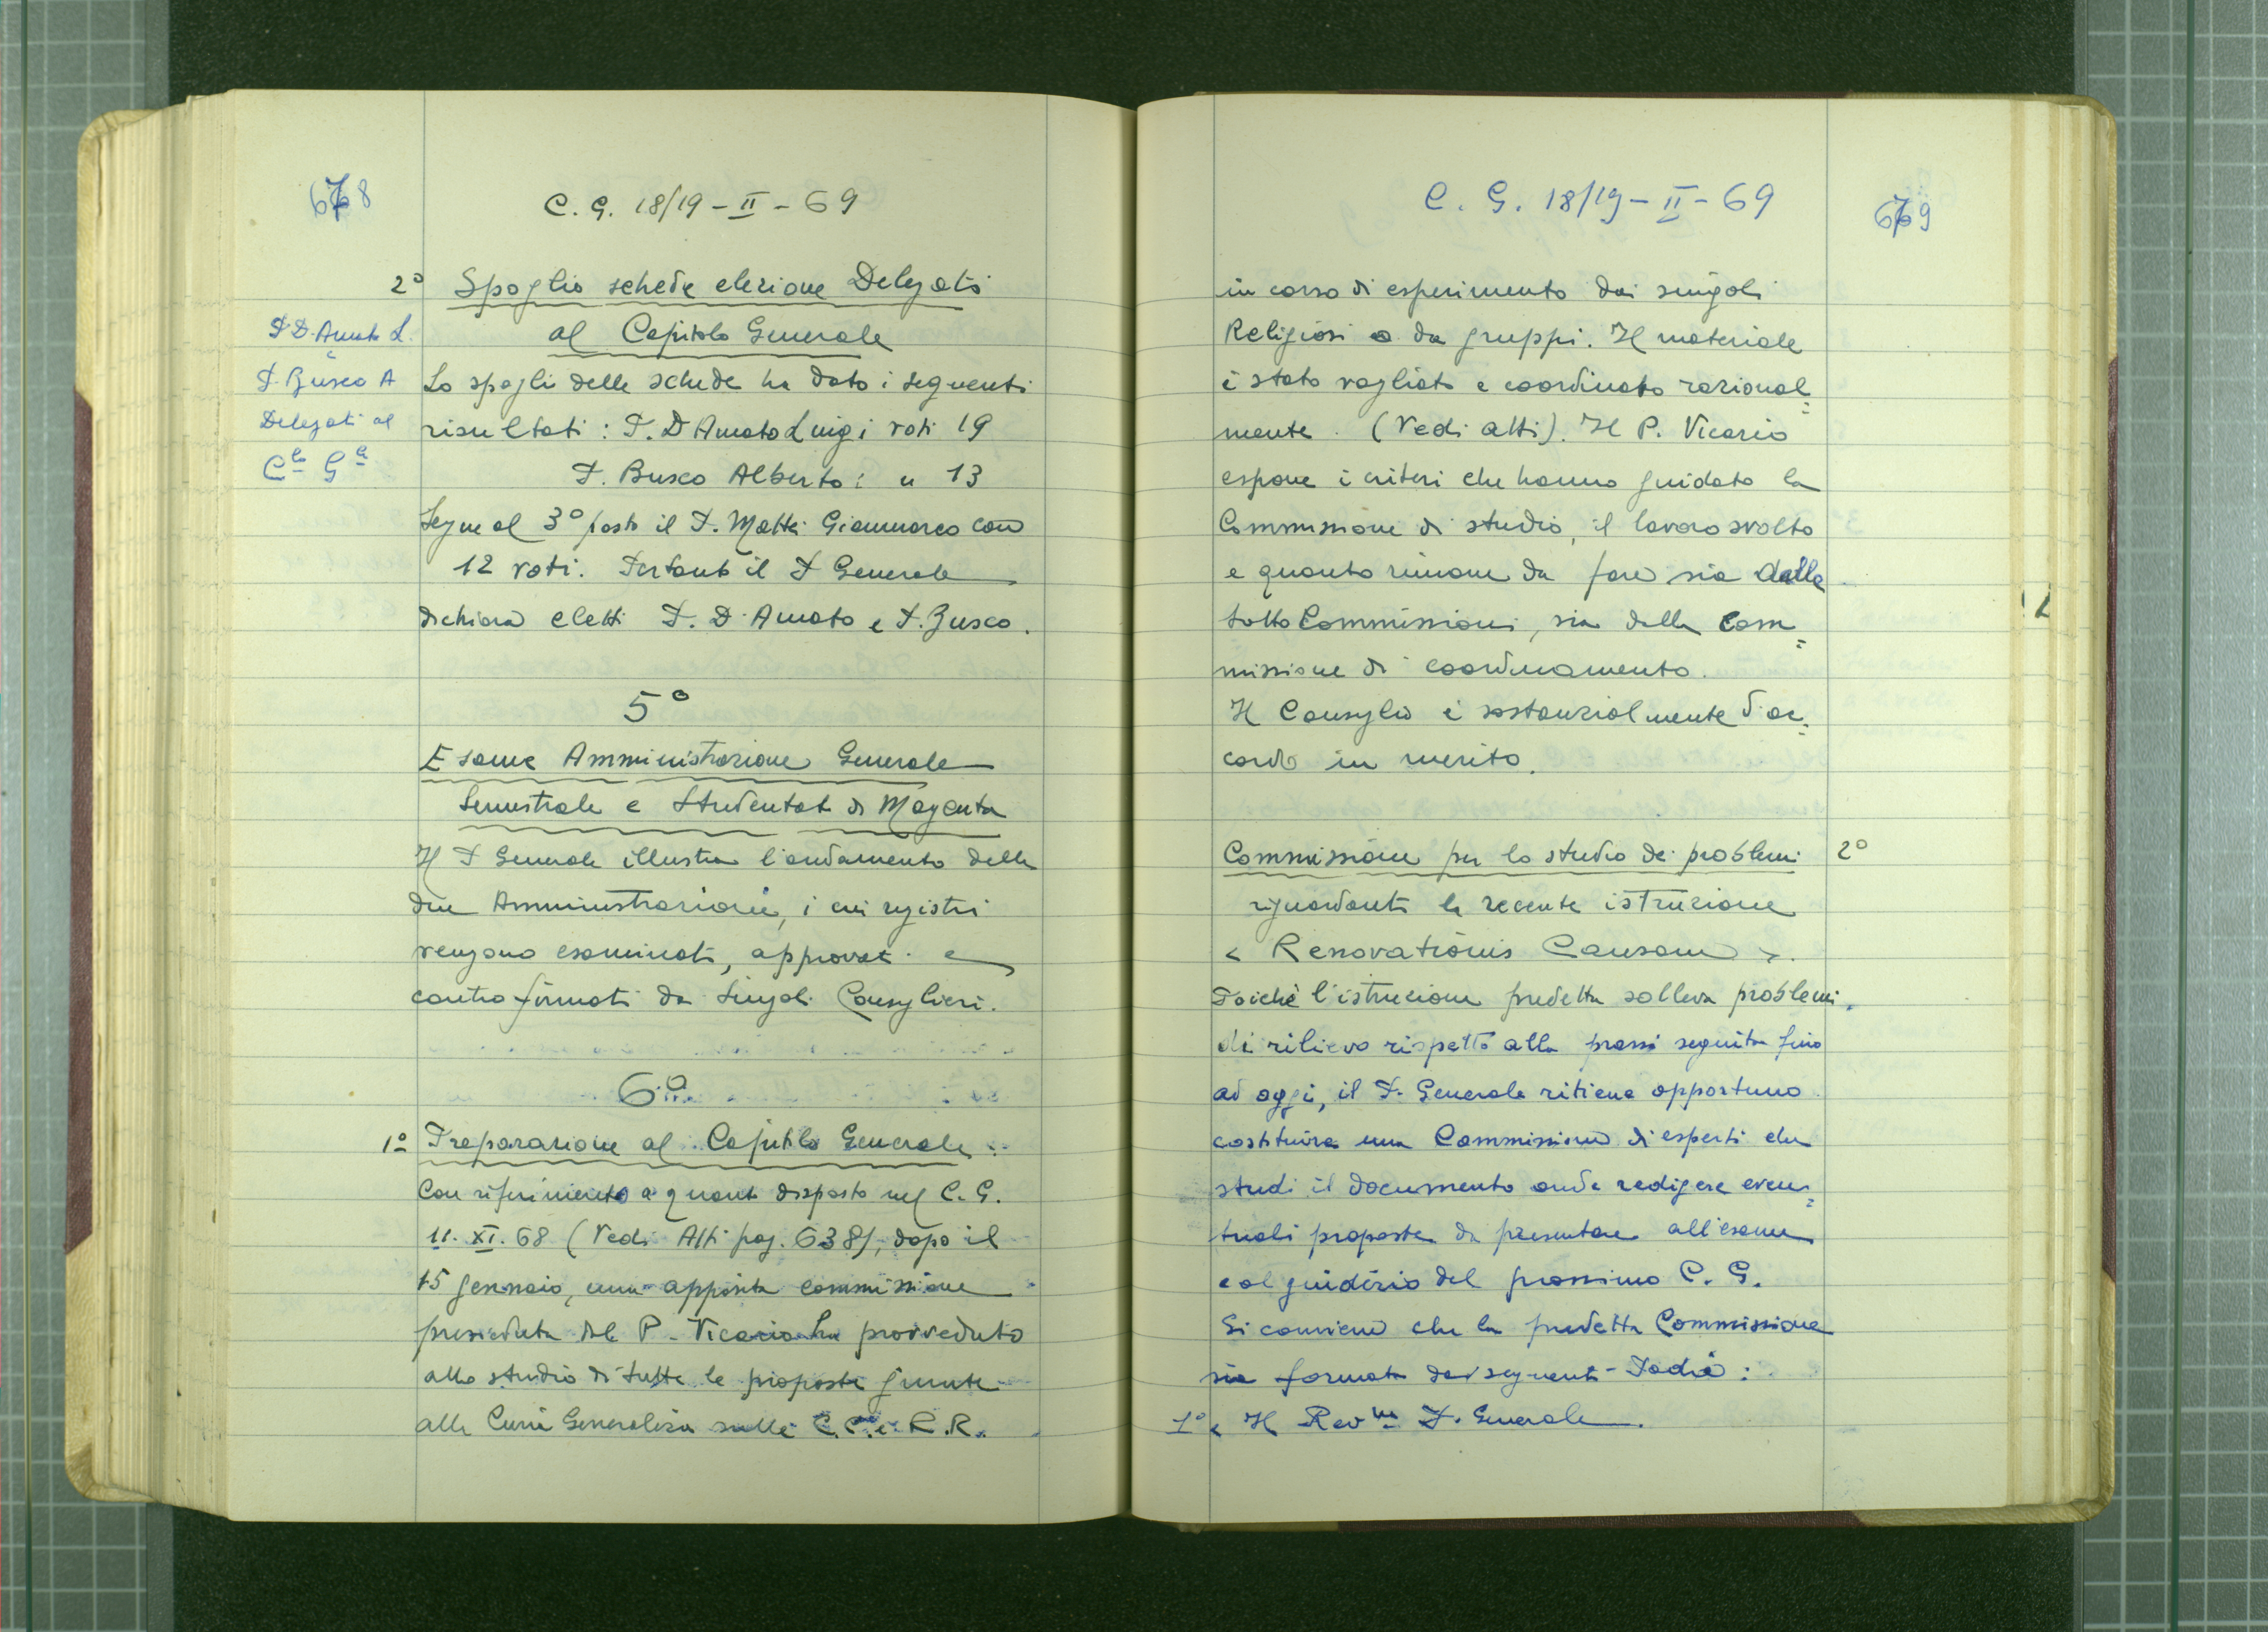 678
C. G. 18/19 - II - 69
2° Spoglio schede elezione Delegati
al Capitolo Generale
P. D'Amato L.
e
P. Busco A
Delegati al
C.lo G.le
Lo spoglio delle schede ha dato i seguenti
risultati : P. D'Amato Luigi voti 19
P. Busco Alberto : " 13
Segue al 3° posto il P. Mattei Gianmarco con
12 voti. Pertanto il P. Generale
dichiara eletti P. D'Amato e P. Busco.
5°
Esame Amministrazione Generale
Semestrale e Studentato di Magenta
Il P. Generale illustra l'andamento delle
due Amministrazioni, i cui registri
vengono esaminati, approvati e
controfirmati da singoli Consiglieri.
6°
1° Preparazione al Capitolo Generale
Con riferimento a quanto disposto nel C. G.
11. XI. 68 (Vedi Atti pag. 638), dopo il
15 gennaio, una apposita commissione
presieduta dal P. Vicario ha provveduto
allo studio di tutte le proposte giunte
alla Curia Generalizia sulle C.C. e R.R.
C. G. 18/19 - II - 69
679
in corso di esperimento dai singoli
Religiosi o da gruppi. Il materiale
è stato vagliato e coordinato razional=
mente. (Vedi atti). Il P. Vicario
espone i criteri che hanno guidato la
Commissione di studio, il lavoro svolto
e quanto rimane da fare sia dalle
sotto Commissioni, sia dalla Com=
missione di coordinamento.
Il Consiglio è sostanzialmente d'ac=
cordo in merito.
Commissione per lo studio dei problemi 2°
riguardanti la recente istruzione
< Renovationis Causam >.
Poichè l'istruzione predetta solleva problemi
di rilievo rispetto alla prassi seguita fino
ad oggi, il P. Generale ritiene opportuno
costituire una Commissione di esperti che
studi il documento onde redigere even=
tuali proposte da presentare all'esame
e al giudizio del prossimo C. G.
Si conviene che la predetta Commissione
sia formata dai seguenti Padri :
1° < Il Rev.mo P. Generale.